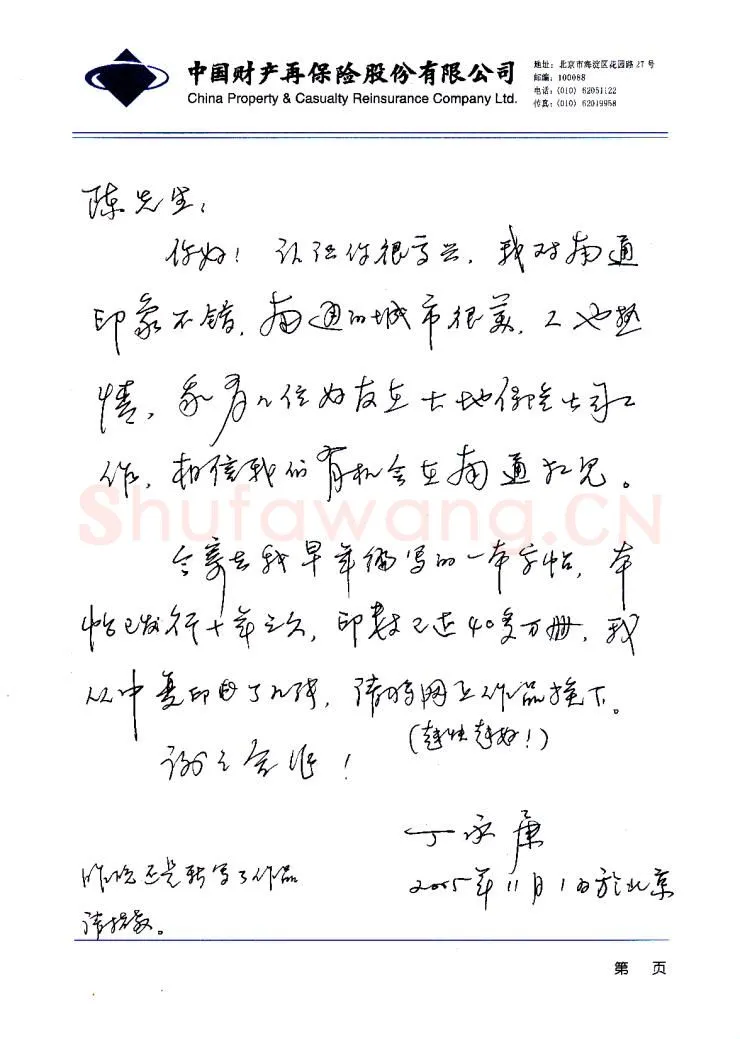 中国财产再保险股份有限公司
China Property & Casualty Reinsurance Company Ltd.
地址: 北京市海淀区花园路 27 号
邮编: 100088
电话: (010) 62051122
传真: (010) 62019958
陈先生:
你好! 认强你很高兴, 我对南通
印象不错, 南通的城市很美, 人也热
情, 我有几位好友在大地保险公司工
作, 相信我们有机会在南通相见。
今寄去我早年编写的一本字帖, 本
帖已发行十年之久, 印数已达40多万册, 我
从中复印了几张, 请将网上作品换下。
(越快越好!)
谢之合作!
丁永康
2005年11月1日於北京
昨晚还是新写了作品
请指教。
Shufawang.CN
第 页